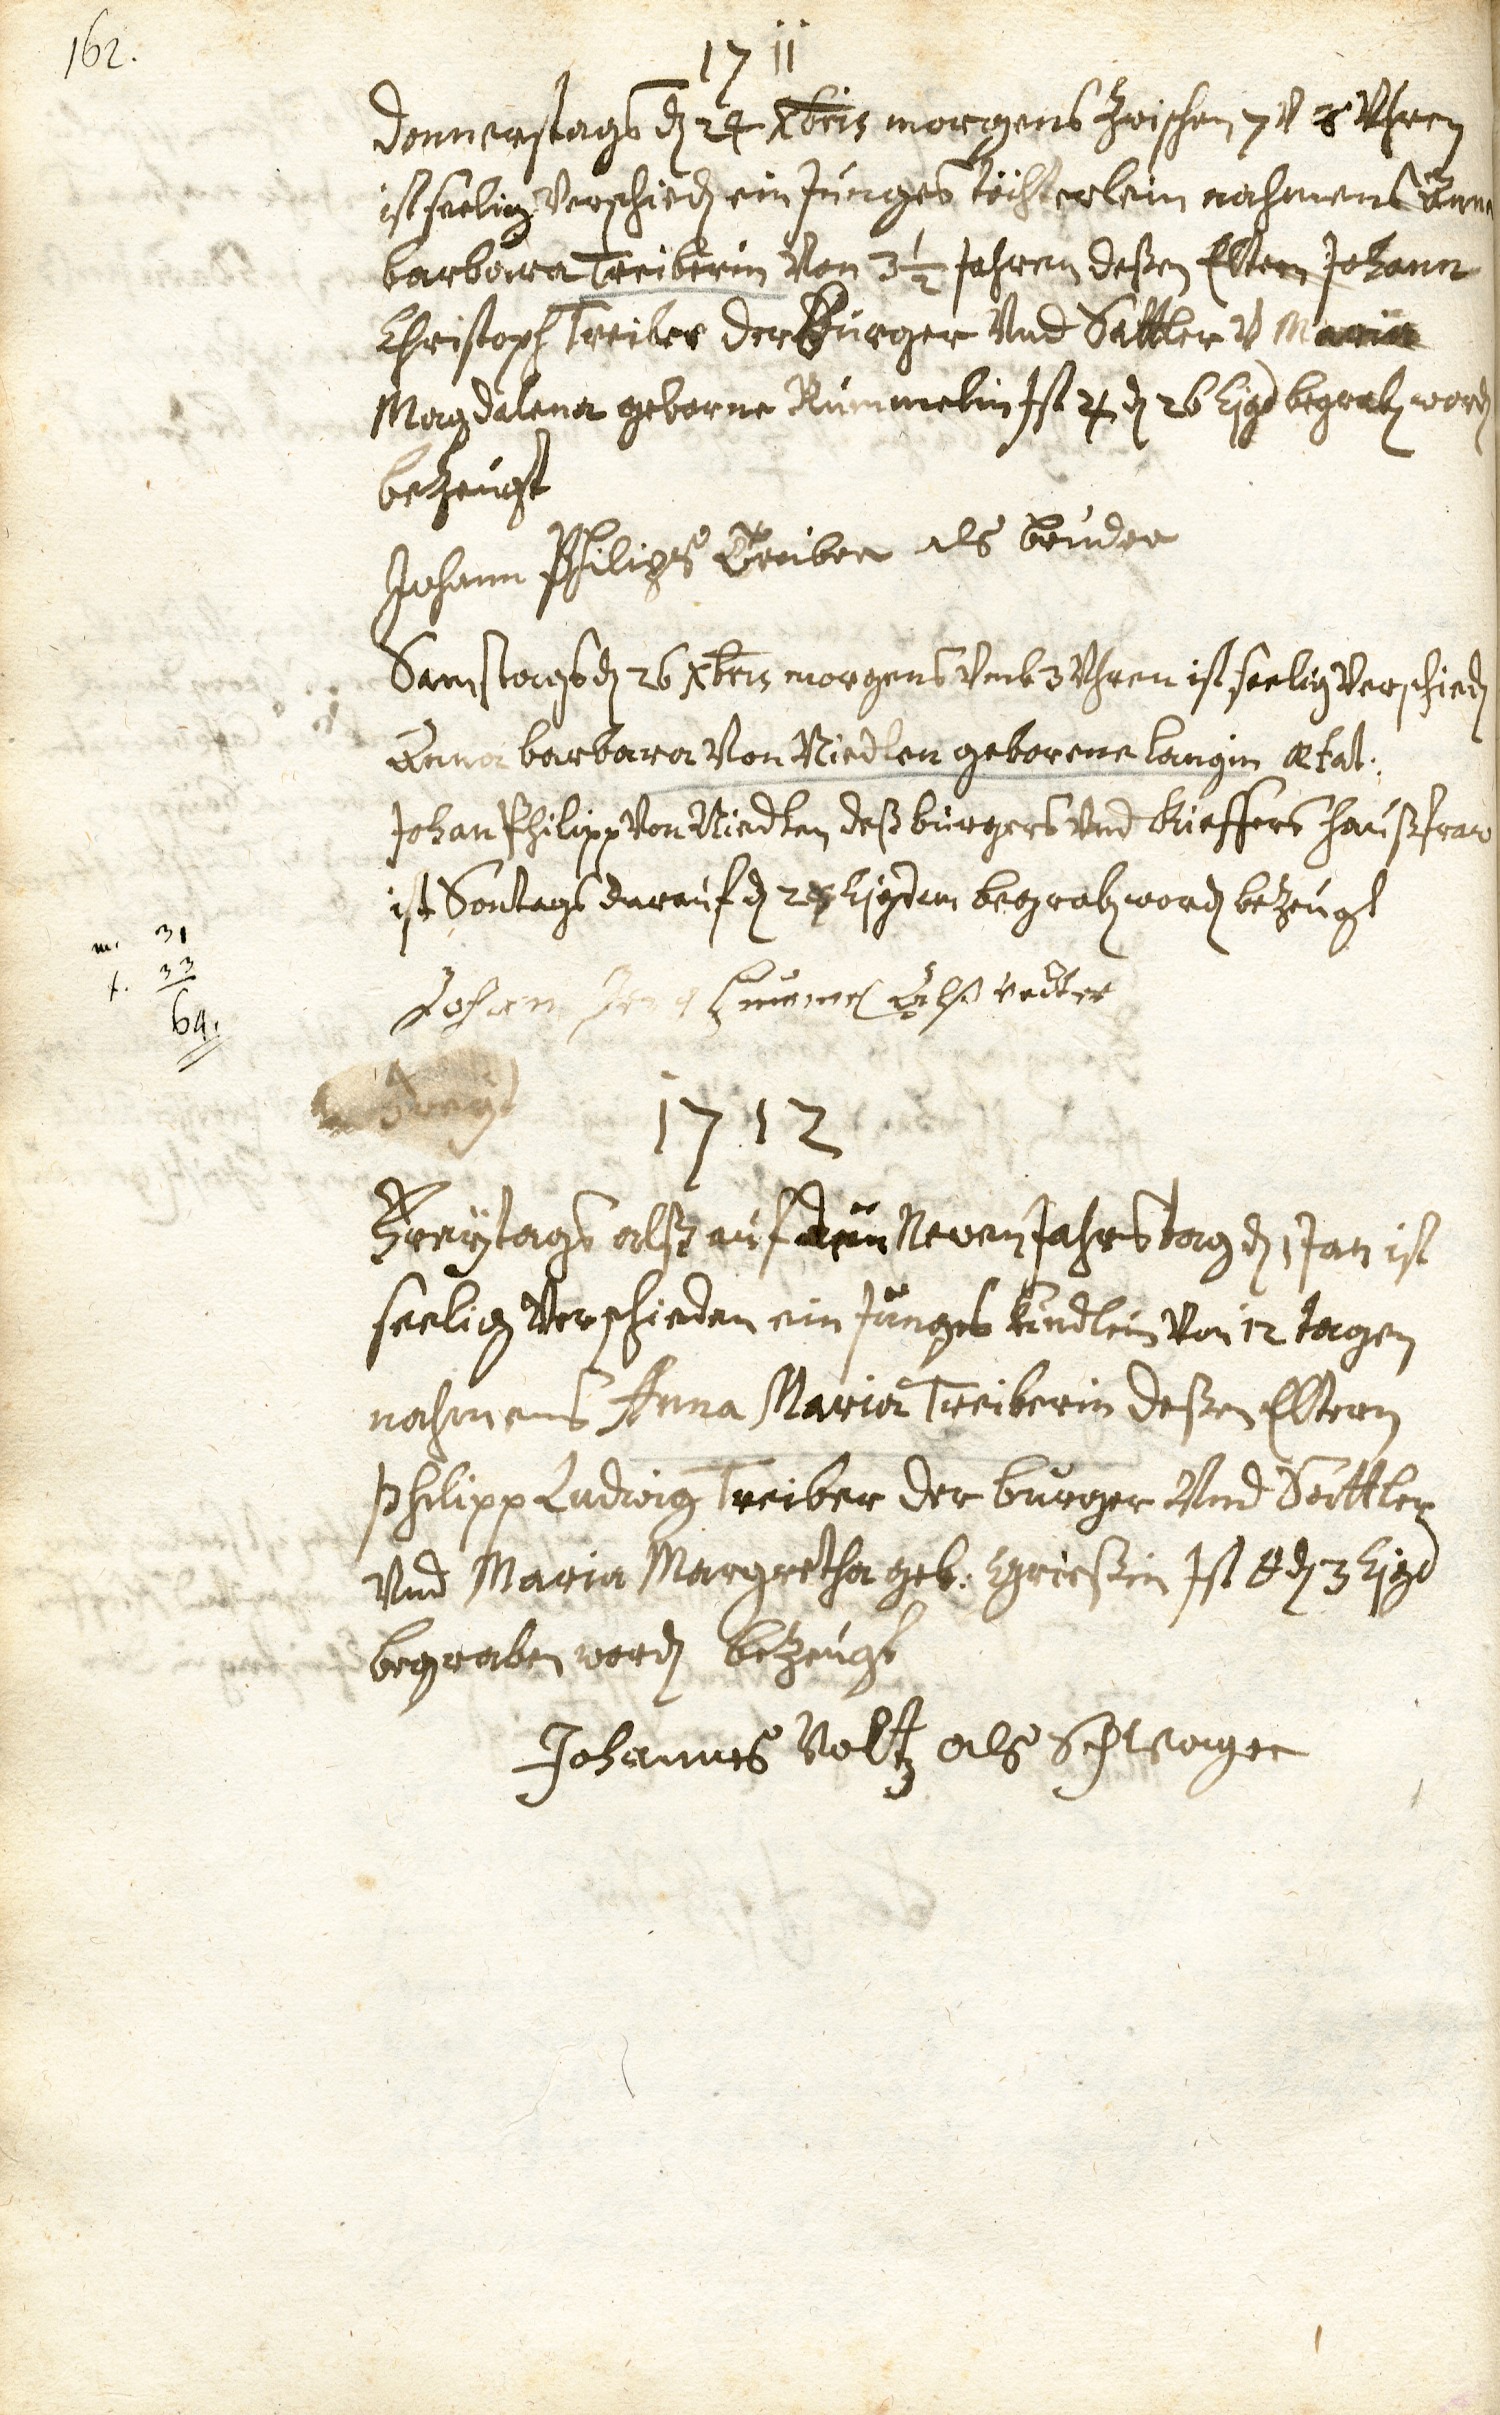 162.
1711
Donnerstags dj 24 Xbris morgens Zwischen 7 V 8 Vhren
ist seelig Verschiedj ein Junges töchterlein nahmens Anna
barbara Treiberin Von 3½ Jahren deßen Eltern Johann
Christoph Treiber der Bürger Vnd Sattler V Maria
Magdalena geborne Rummelin Ist dj 26 Ejqd begrabj wordj
beZeugt
Johann Philips Treiber als bruder
Samstags dj 26 Xbris morgens Vmb 3 Vhren ist seelig Verschiedj
Anna barbara Von Niedlen geborene langin Ætat:
Johan Philipp Von Niedlen deß burgers Vnd Kieffers haußfraw
ist Sontags darauf dj Ejusdem begrabj wordj beZeugt
m. 31
f. 33
64.
Johan als vetter
freyt
1712
Freytags alß auf den Newen Jahrs tag dj 1 Jan ist
seelig Verschieden ein Junges Kindlein Von 12 tagen
nahmens Anna Maria Treiberin deßen Eltern
Philipp Ludwig Treiber der burger Vnd Sattler
Vnd Maria Margretha geb: Ist dj 3 Ejqd
begraben wordj beZeugt
Johannes Voltz als Schwager